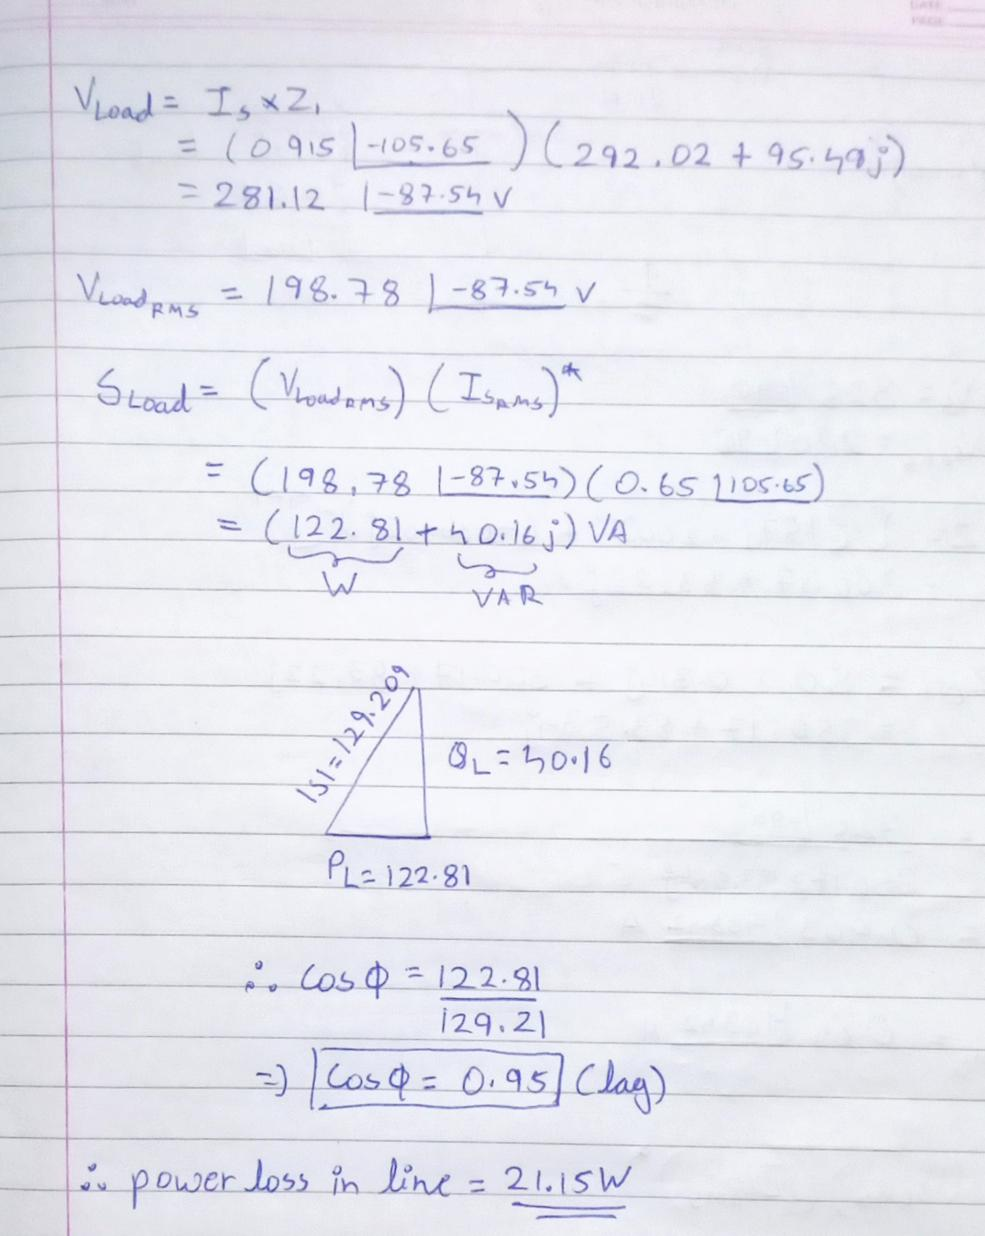 DATE
PAGE
V_Load = I_s × Z_1
= (0.915 ∠-105.65) (292.02 + 95.49j)
= 281.12 ∠-87.54 V
V_Load RMS = 198.78 ∠-87.54 V
S_Load = (V_Load RMS) (I_S RMS)*
= (198.78 ∠-87.54) (0.65 ∠105.65)
= (122.81 + 40.16j) VA
W VAR
|S| = 129.209
Q_L = 40.16
P_L = 122.81
∴ Cos φ = 122.81
129.21
⇒ Cos φ = 0.95 (lag)
∴ power loss in line = 21.15W